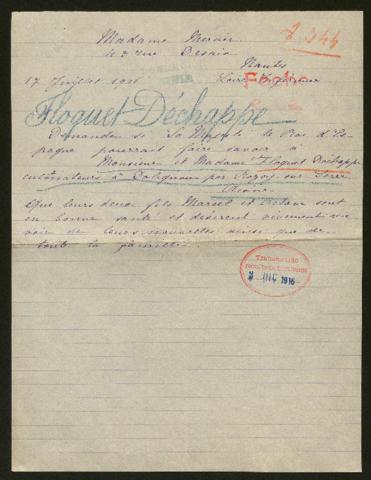 Madame Mercier
rue Desaix
Nantes
17 Juillet 1916 Loire Inférieure
Floquet Déchappe
Demander si Sa Majesté le Roi d'Es-
pagne pourrait faire savoir à
Monsieur et Madame Floquet Déchappe
cultivateurs à Dolignon par Rozoy sur Serre
Aisne
Que leurs deux fils Marcel et sont
en bonne santé et désirent vivement
voir de leurs nouvelles ainsi que de
toute la famille.
TRAMITADO
1916